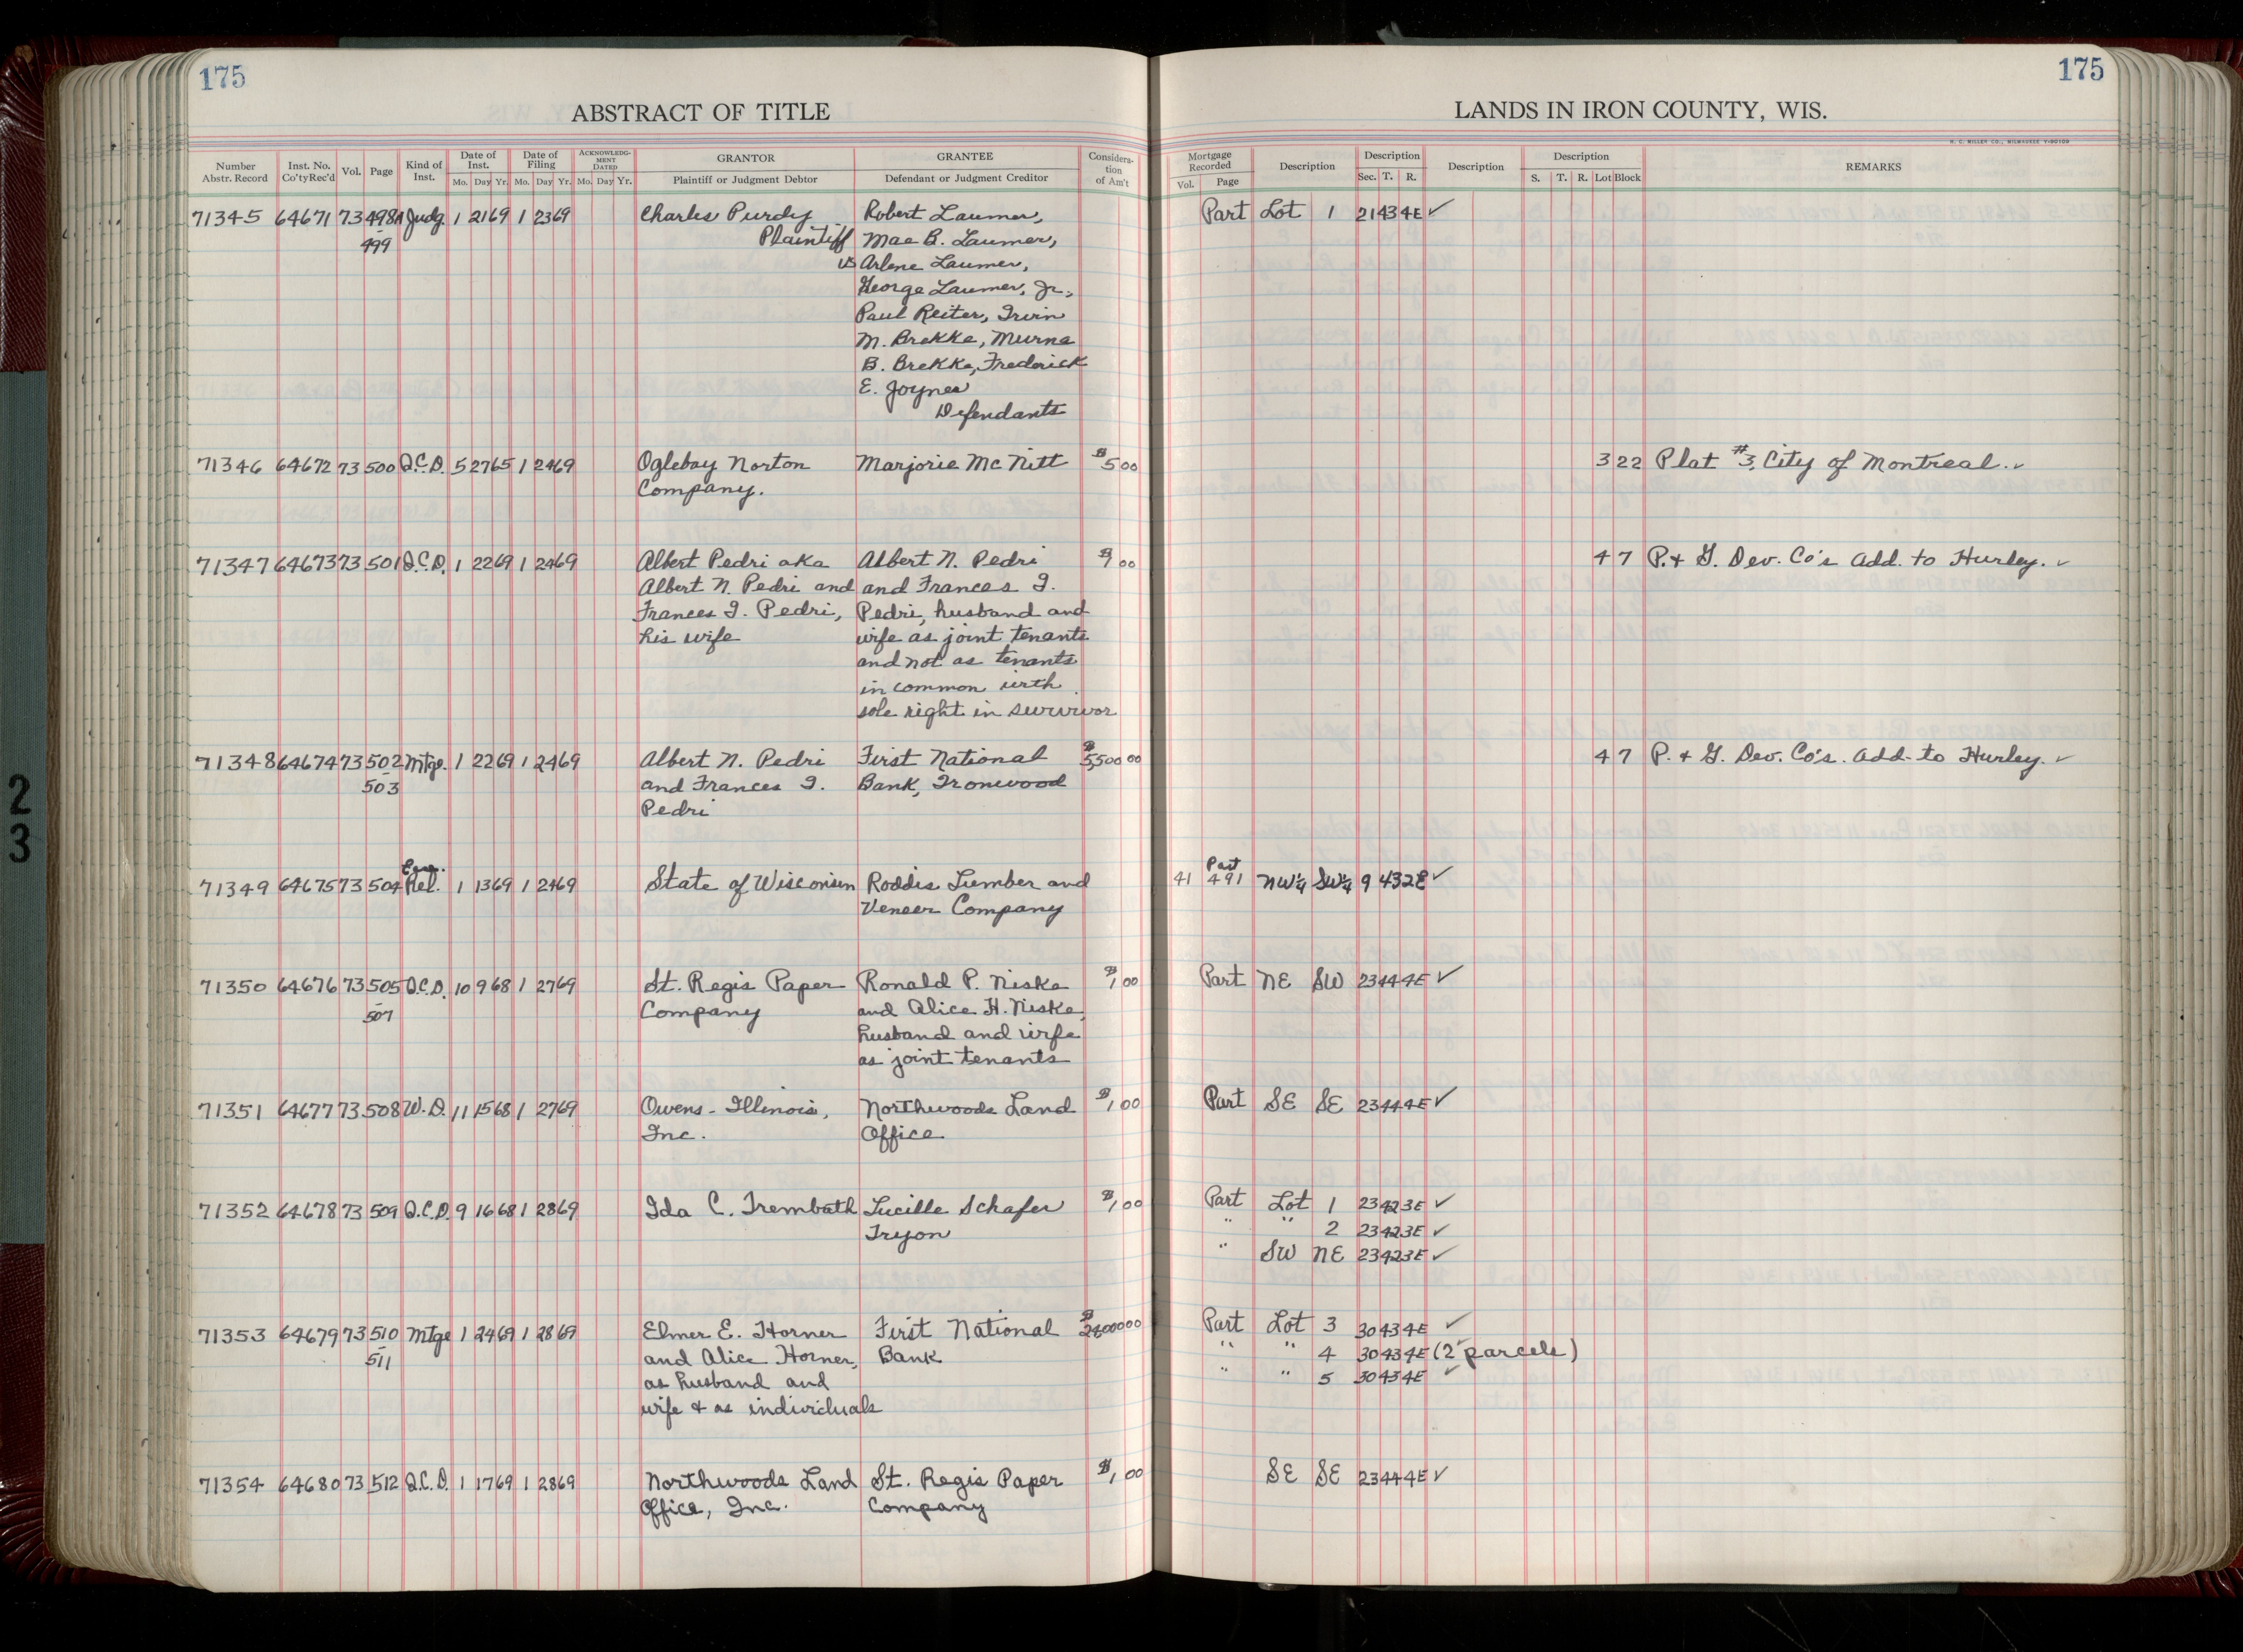 175
175
ABSTRACT OF TITLE
LANDS IN IRON COUNTY, WIS.
H. C. MILLER CO., MILWAUKEE
Number Abstr. Record Inst. No. Co'ty Rec'd Vol. Page Kind of Inst. Date of Inst. Mo. Day Yr. Date of Filing Mo. Day Yr. ACKNOWLEDGMENT DATED Mo. Day Yr. GRANTOR Plaintiff or Judgment Debtor GRANTEE Defendant or Judgment Creditor Consideration of Am't Mortgage Recorded Vol. Page Description Description Sec. T. R. Description Description S. T. R. Lot Block REMARKS
71345 64671 73 498A Judg. 1 21 69 1 23 69 Charles Purdy Robert Laumer, Part Lot 1 21 43 4E ✓
- 499 Plaintiff Mae B. Laumer,
vs Arlene Laumer,
George Laumer, Jr.,
Paul Reiter, Irvin
M. Brekke, Murna
B. Brekke, Frederick
E. Joynes
Defendants
71346 64672 73 500 Q.C.D. 5 27 65 1 24 69 Oglebay Norton Marjorie McNitt $5 00 3 22 Plat #3, City of Montreal. ✓
Company.
71347 64673 73 501 Q.C.D. 1 22 69 1 24 69 Albert Pedri aka Albert N. Pedri $1 00 4 7 P. + G. Dev. Co's Add. to Hurley. ✓
Albert N. Pedri and and Frances I.
Frances I. Pedri, Pedri, husband and
his wife wife as joint tenants
and not as tenants
in common with
sole right in survivor
71348 64674 73 502 Mtge. 1 22 69 1 24 69 Albert N. Pedri First National $5,500 00 4 7 P. + G. Dev. Co's. Add. to Hurley. ✓
- 503 and Frances I. Bank, Ironwood
Pedri
Part
71349 64675 73 504 Rel. 1 13 69 1 24 69 State of Wisconsin Roddis Lumber and 41 491 NW¼ SW¼ 9 43 2E ✓
Veneer Company
71350 64676 73 505 Q.C.D. 10 9 68 1 27 69 St. Regis Paper Ronald P. Niska $1 00 Part NE SW 23 44 4E ✓
- 507 Company and Alice H. Niska,
husband and wife
as joint tenants
71351 64677 73 508 W.D. 11 15 68 1 27 69 Owens-Illinois, Northwoods Land $1 00 Part SE SE 23 44 4E ✓
Inc. Office
71352 64678 73 509 Q.C.D. 9 16 68 1 28 69 Ida C. Trembath Lucille Schafer $1 00 Part Lot 1 23 42 3E ✓
Tryon " " 2 23 42 3E ✓
" SW NE 23 42 3E ✓
71353 64679 73 510 Mtge 1 24 69 1 28 69 Elmer E. Horner First National Part Lot 3 30 43 4E ✓
- 511 and Alice Horner, Bank " " 4 30 43 4E (2 parcels) ✓
as husband and " " 5 30 43 4E ✓
wife + as individuals
71354 64680 73 512 Q.C.D. 1 17 69 1 28 69 Northwoods Land St. Regis Paper $1 00 SE SE 23 44 4E ✓
Office, Inc. Company
2
3